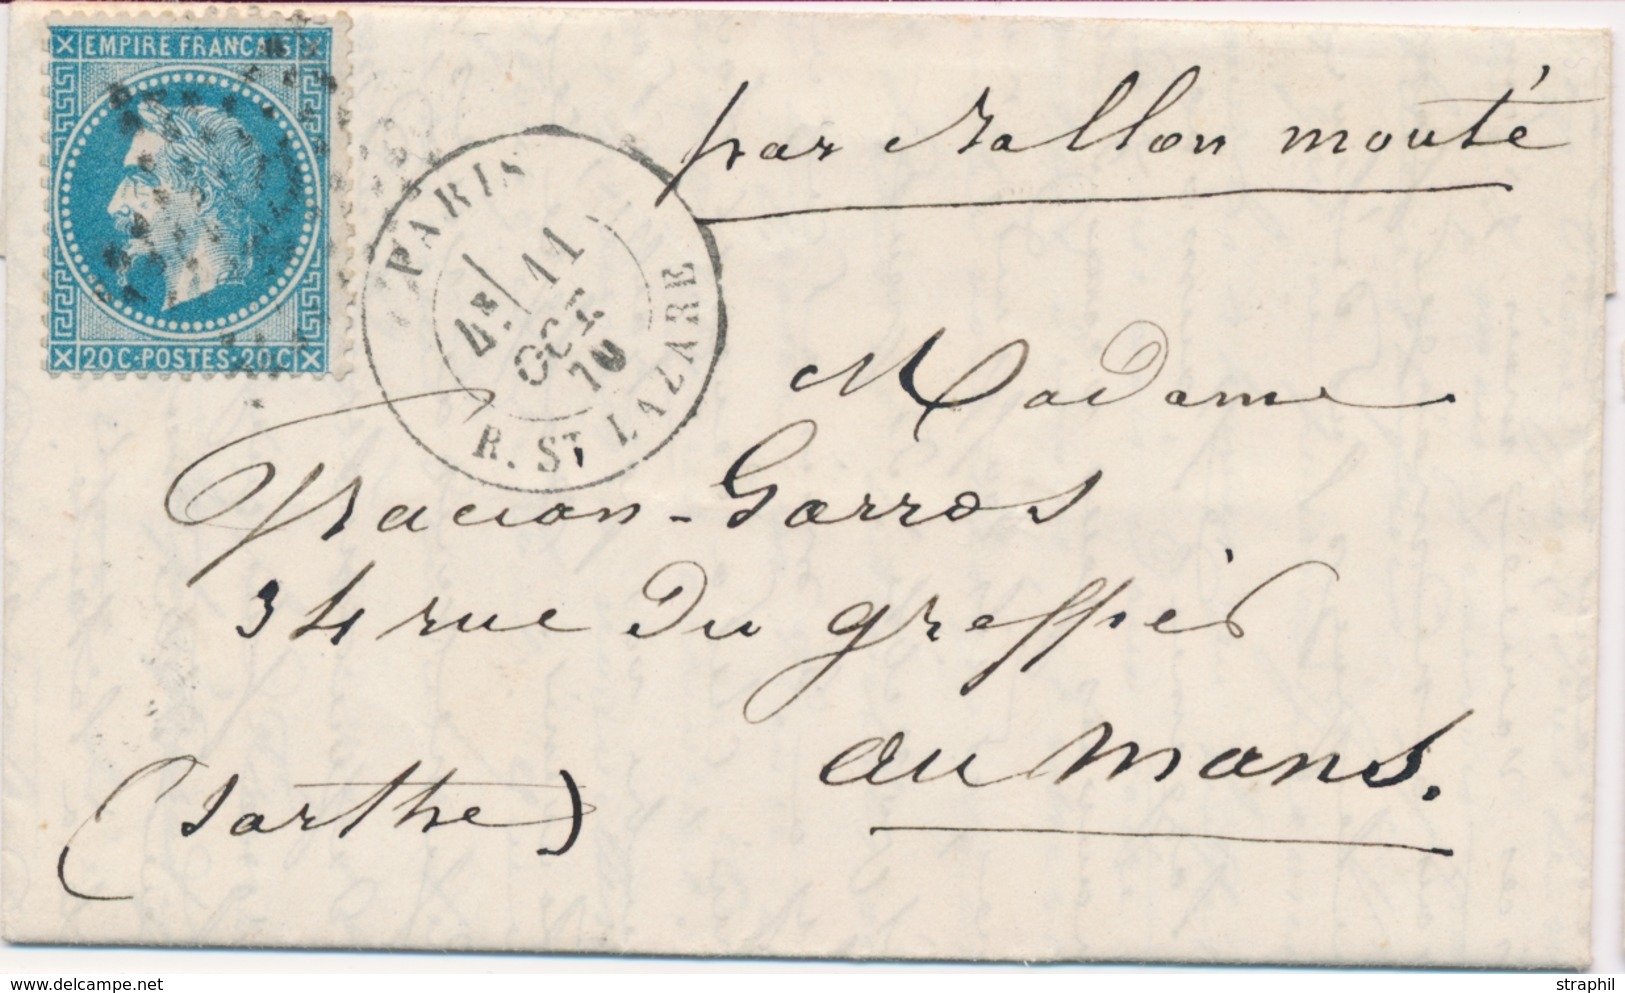 EMPIRE FRANCAIS
20C·POSTES·20C
PARIS
4E
11
OCT
70
R. ST LAZARE
par Ballon monté
Madame
Gracian-Garros
34 rue du greffier
au Mans.
(Sarthe)
www.delcampe.net
straphil